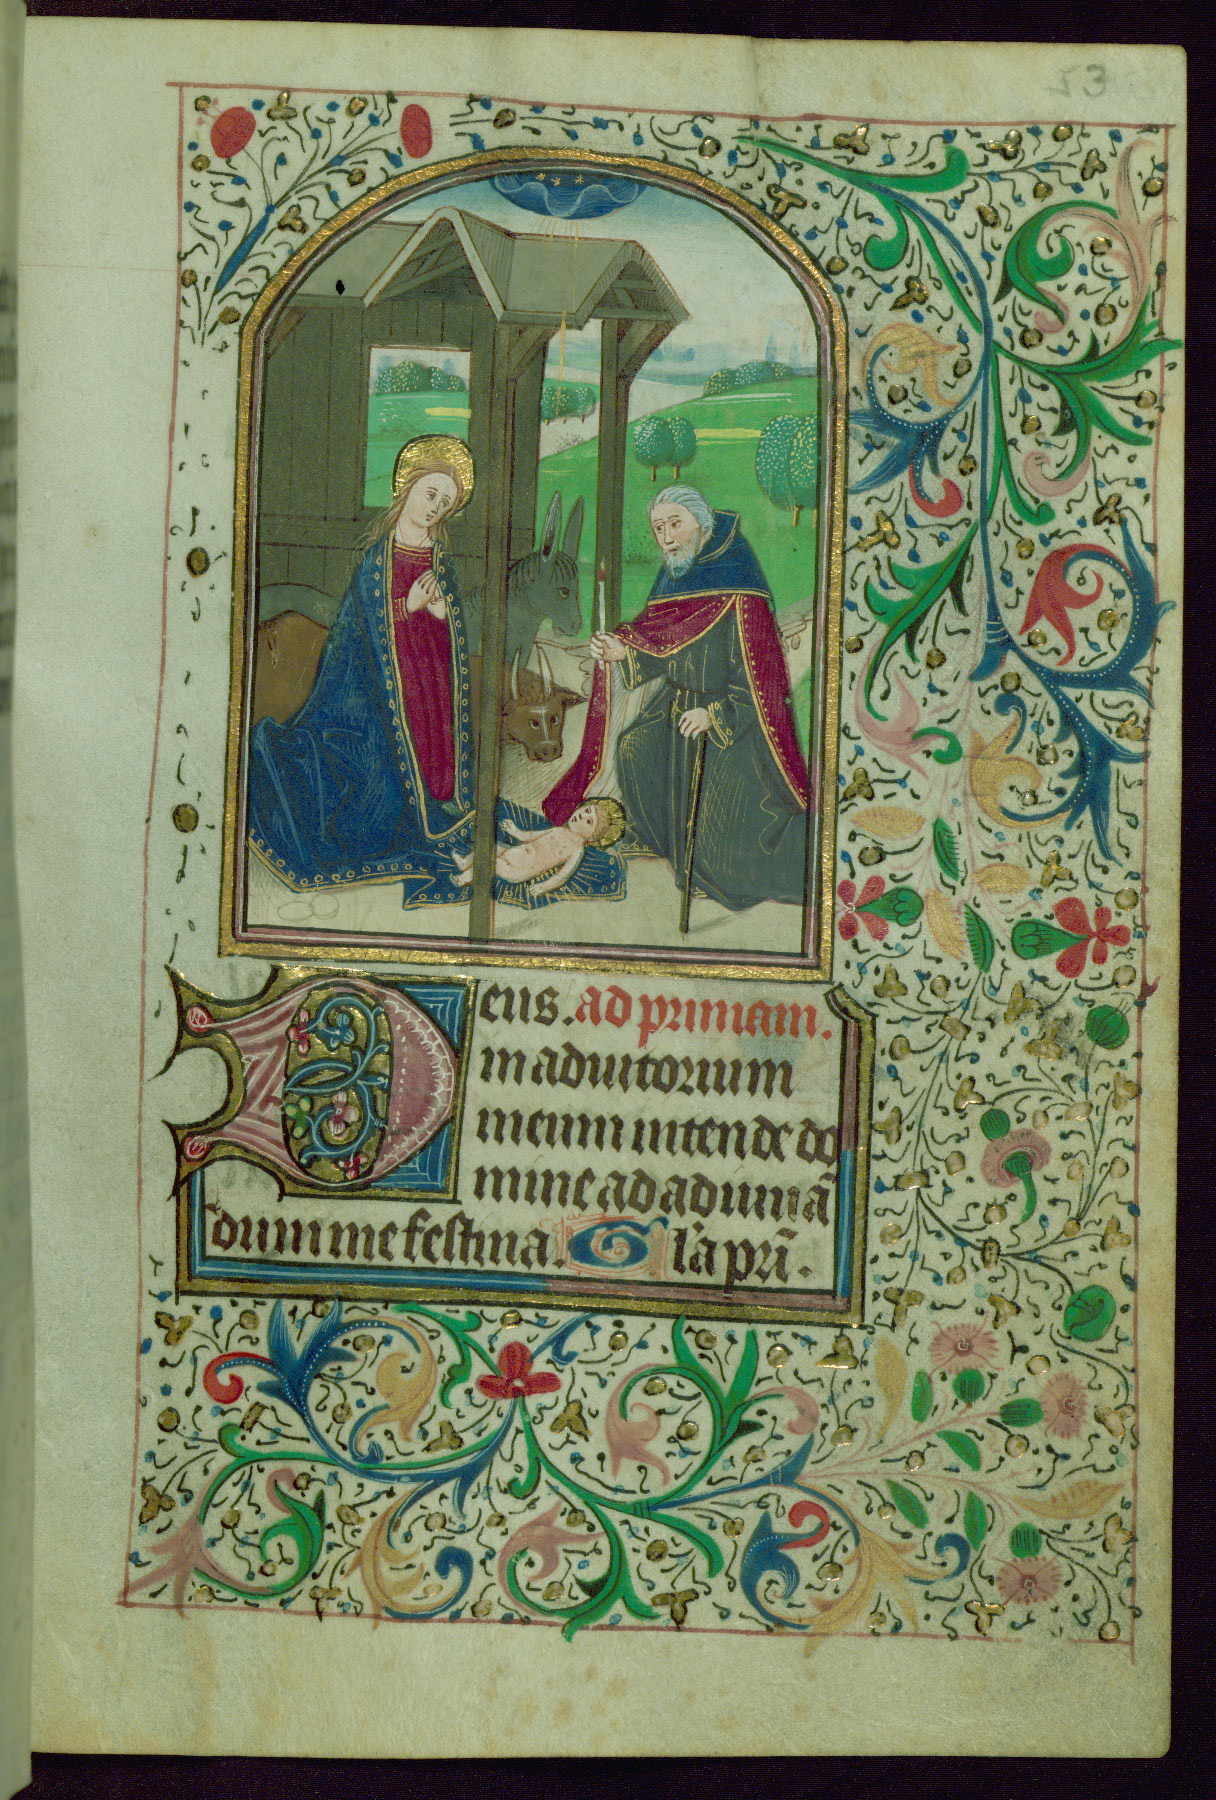 53
Deus. ad primam.
in adiutorium
meum intende do
mine ad adiuuā
dum me festina. Gl'a pr̄i.